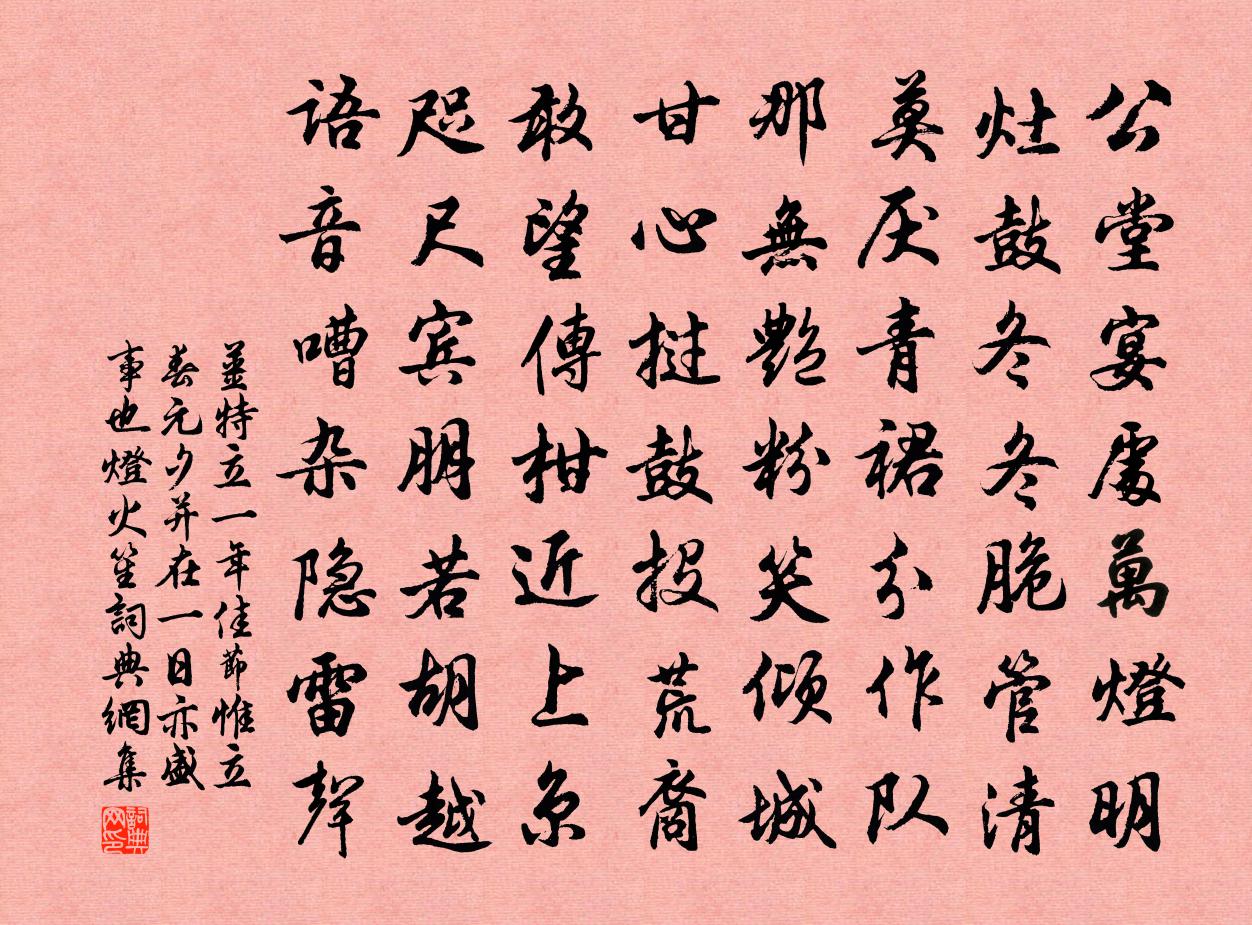 公堂宴處萬燈明
灶鼓冬冬脆管清
莫厌青裙分作队
那無艶粉笑倾城
甘心挝鼓投荒裔
敢望傳柑近上京
咫尺宾朋若胡越
语音嘈杂隐雷聲
薑特立一年佳節惟立
春元夕并在一日亦盛
事也燈火笙詞典網集
詞典网印